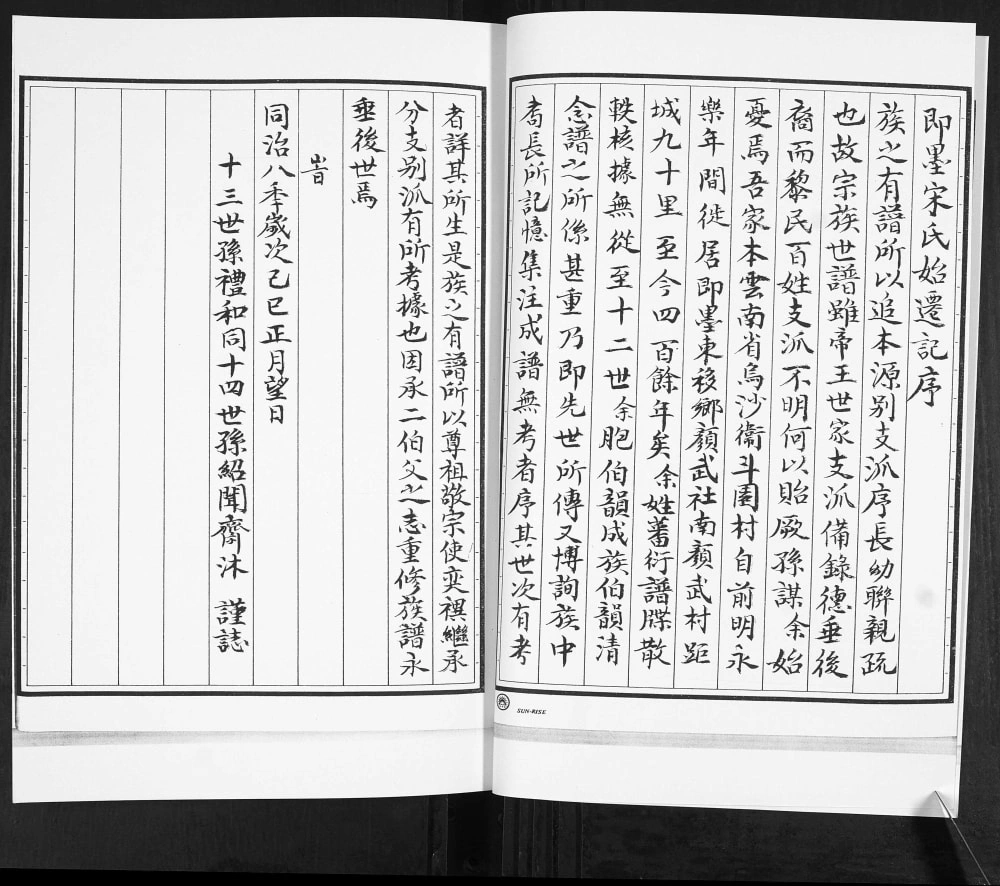 即墨宋氏始遷記序
族之有譜所以追本源别支派序長幼聯親疏
也故宗族世譜雖帝王世家支派備錄德垂後
裔而黎民百姓支派不明何以貽厥孫謀余始
憂焉吾家本雲南省烏沙衞斗圜村自前明永
樂年間徙居即墨東移鄉顏武社南顏武村距
城九十里至今四百餘年矣余姓蕃衍譜牒散
軼核據無從至十二世余胞伯韻成族伯韻清
念譜之所係甚重乃即先世所傳又博詢族中
耆長所記憶集注成譜無考者序其世次有考
者詳其所生是族之有譜所以尊祖敬宗使奕禩繼承
分支别派有所考據也因承二伯父之志重修族譜永
垂後世焉
旹
同治八季歲次己巳正月望日
十三世孫禮和同十四世孫紹聞齋沐 謹誌
SUN-RISE